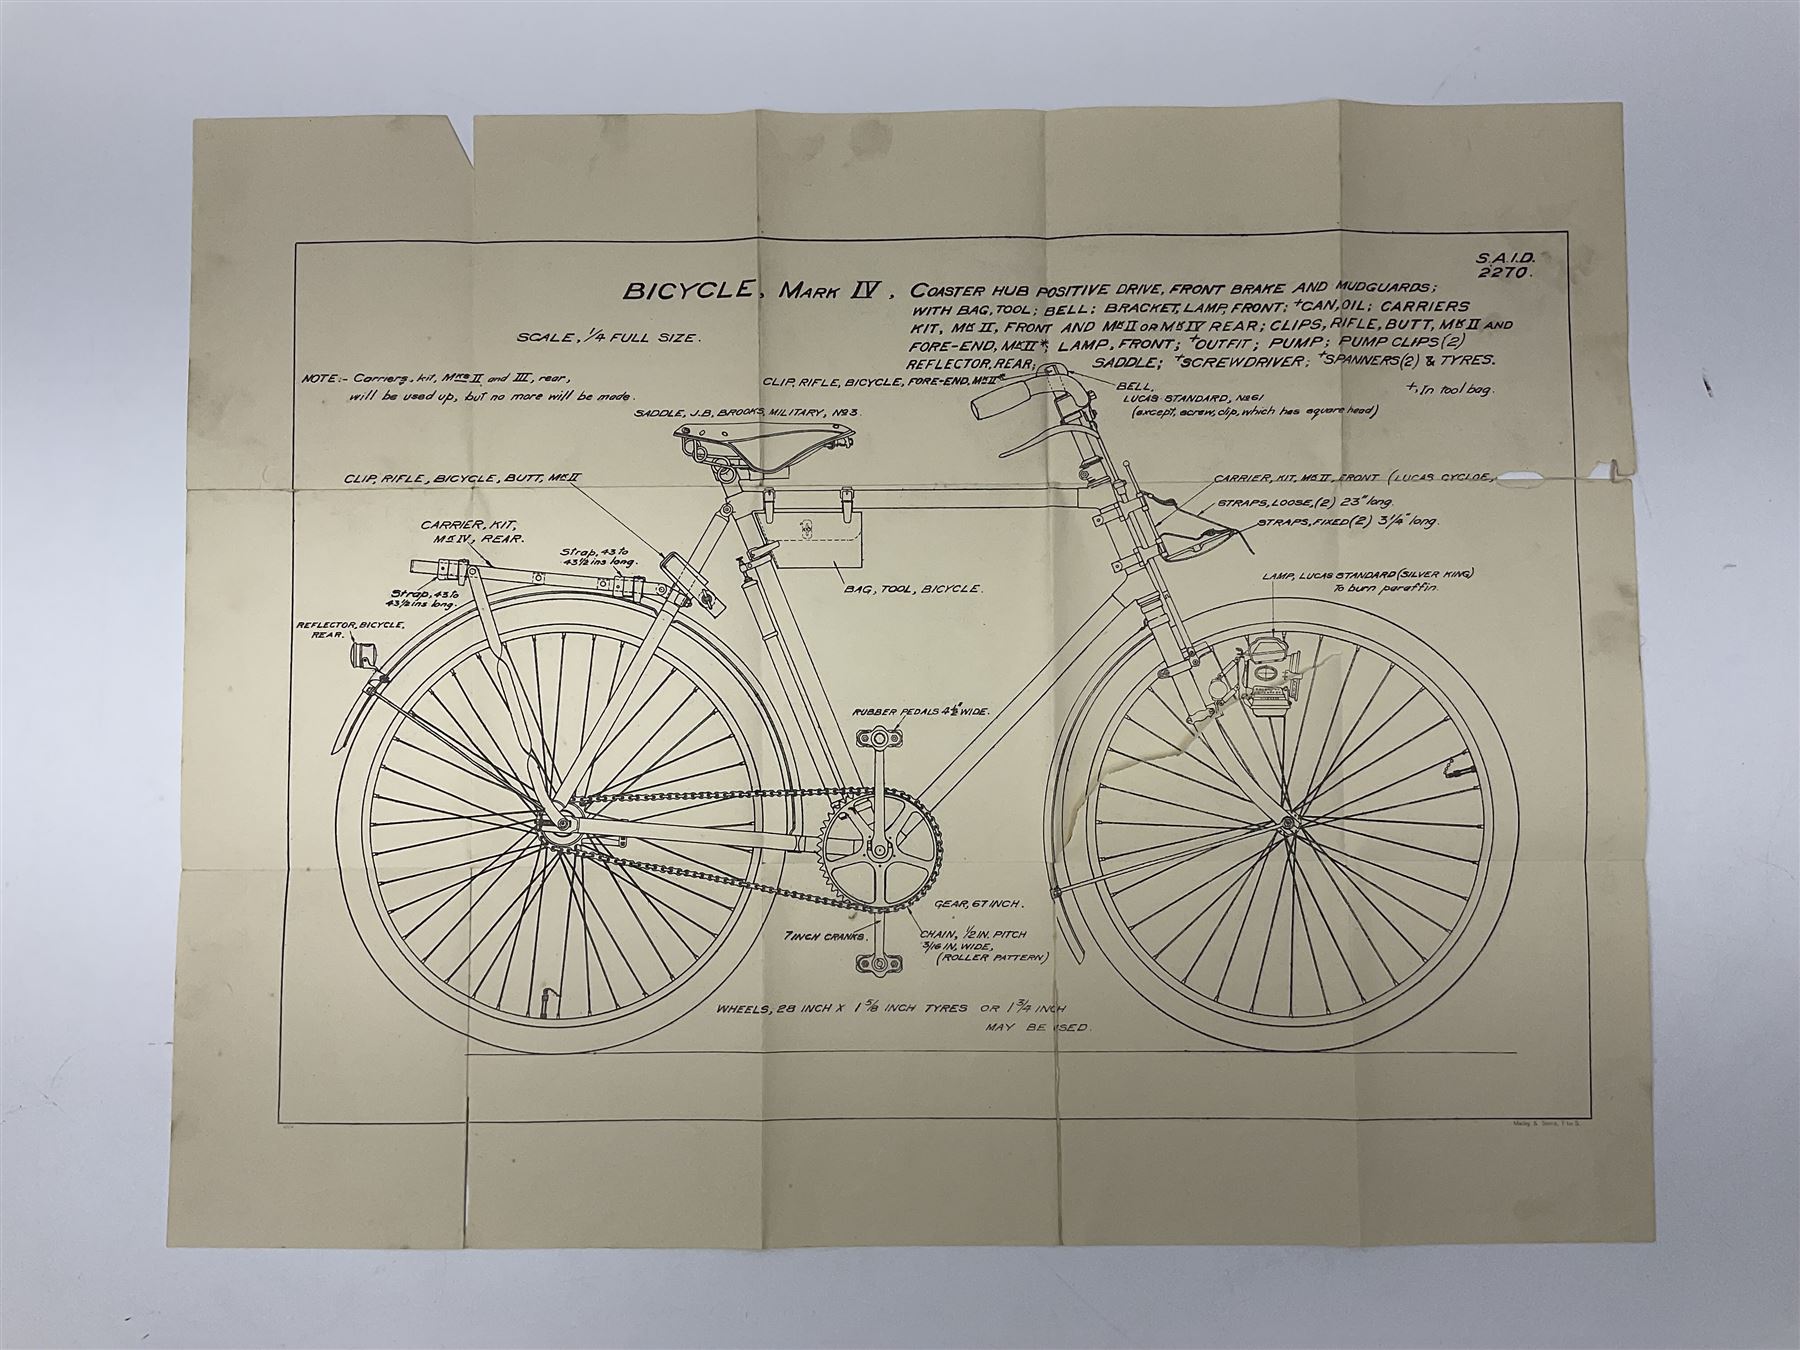 S.A.I.D.
2270.
BICYCLE, MARK IV, COASTER HUB POSITIVE DRIVE, FRONT BRAKE AND MUDGUARDS;
WITH BAG, TOOL; BELL; BRACKET, LAMP, FRONT; +CAN, OIL; CARRIERS
KIT, MK II, FRONT AND MK II OR MK IV REAR; CLIPS, RIFLE, BUTT, MK II AND
FORE-END, MK II*; LAMP, FRONT; +OUTFIT; PUMP; PUMP CLIPS (2)
REFLECTOR, REAR; SADDLE; +SCREWDRIVER; +SPANNERS (2) & TYRES.
+, In tool bag.
SCALE, 1/4 FULL SIZE.
NOTE:- Carriers, kit, MKS II and III, rear,
will be used up, but no more will be made.
CLIP, RIFLE, BICYCLE, FORE-END, MK II*
BELL,
LUCAS STANDARD, No 61
(except, screw, clip, which has square head)
SADDLE, J.B. BROOKS, MILITARY, No 3.
CLIP, RIFLE, BICYCLE, BUTT, MK II
CARRIER, KIT, MK II, FRONT (LUCAS CYCLOE,
STRAPS, LOOSE, (2) 23" long.
STRAPS, FIXED (2) 3 1/4" long.
CARRIER, KIT,
MK IV, REAR.
Strap, 43 to
43 1/2 ins long.
Strap, 43 to
43 1/2 ins long.
BAG, TOOL, BICYCLE.
LAMP, LUCAS STANDARD (SILVER KING)
To burn paraffin.
REFLECTOR, BICYCLE,
REAR.
RUBBER PEDALS 4 1/2" WIDE.
GEAR, 67 INCH.
7 INCH CRANKS.
CHAIN, 1/2 IN. PITCH
3/16 IN, WIDE,
(ROLLER PATTERN)
WHEELS, 28 INCH X 1 5/8 INCH TYRES OR 1 3/4 INCH
MAY BE USED.